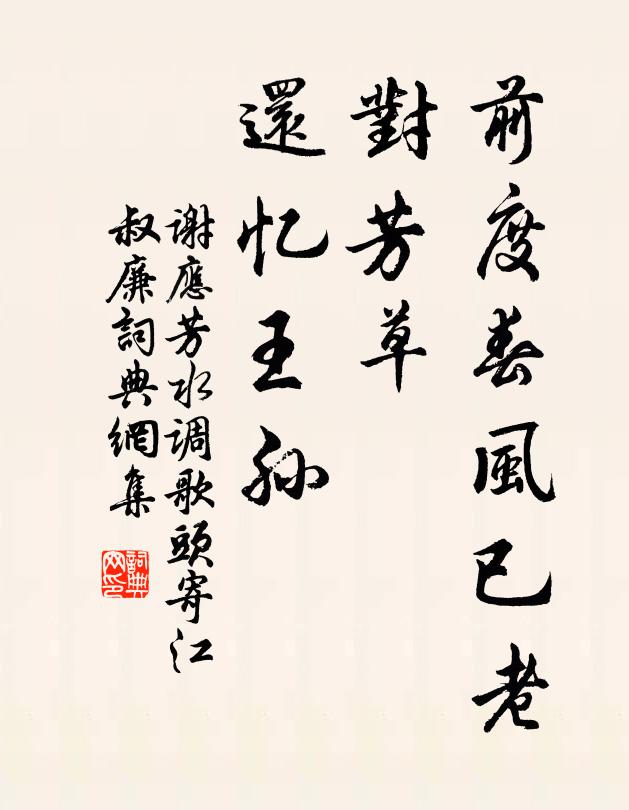 前度春風已老
對芳草
還忆王孙
谢應芳水调歌頭寄江
叔廉詞典網集
詞典
网印